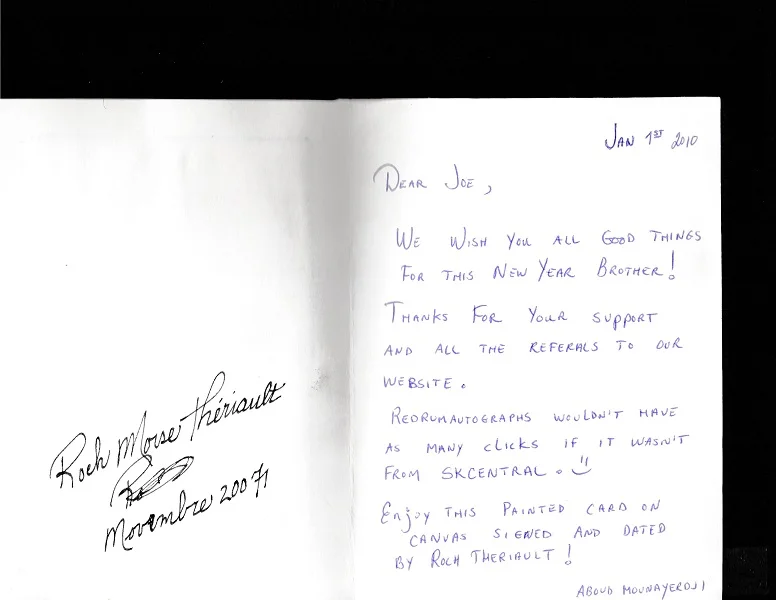 Roch Moïse Thériault
Novembre 2007
JAN 1ST 2010
DEAR JOE,
WE WISH YOU ALL GOOD THINGS
FOR THIS NEW YEAR BROTHER!
THANKS FOR YOUR SUPPORT
AND ALL THE REFERALS TO OUR
WEBSITE.
REDRUMAUTOGRAPHS WOULDN'T HAVE
AS MANY CLICKS IF IT WASN'T
FROM SKCENTRAL.
ENJOY THIS PAINTED CARD ON
CANVAS SIGNED AND DATED
BY ROCH THERIAULT!
ABOUD MOUNAYERDJI